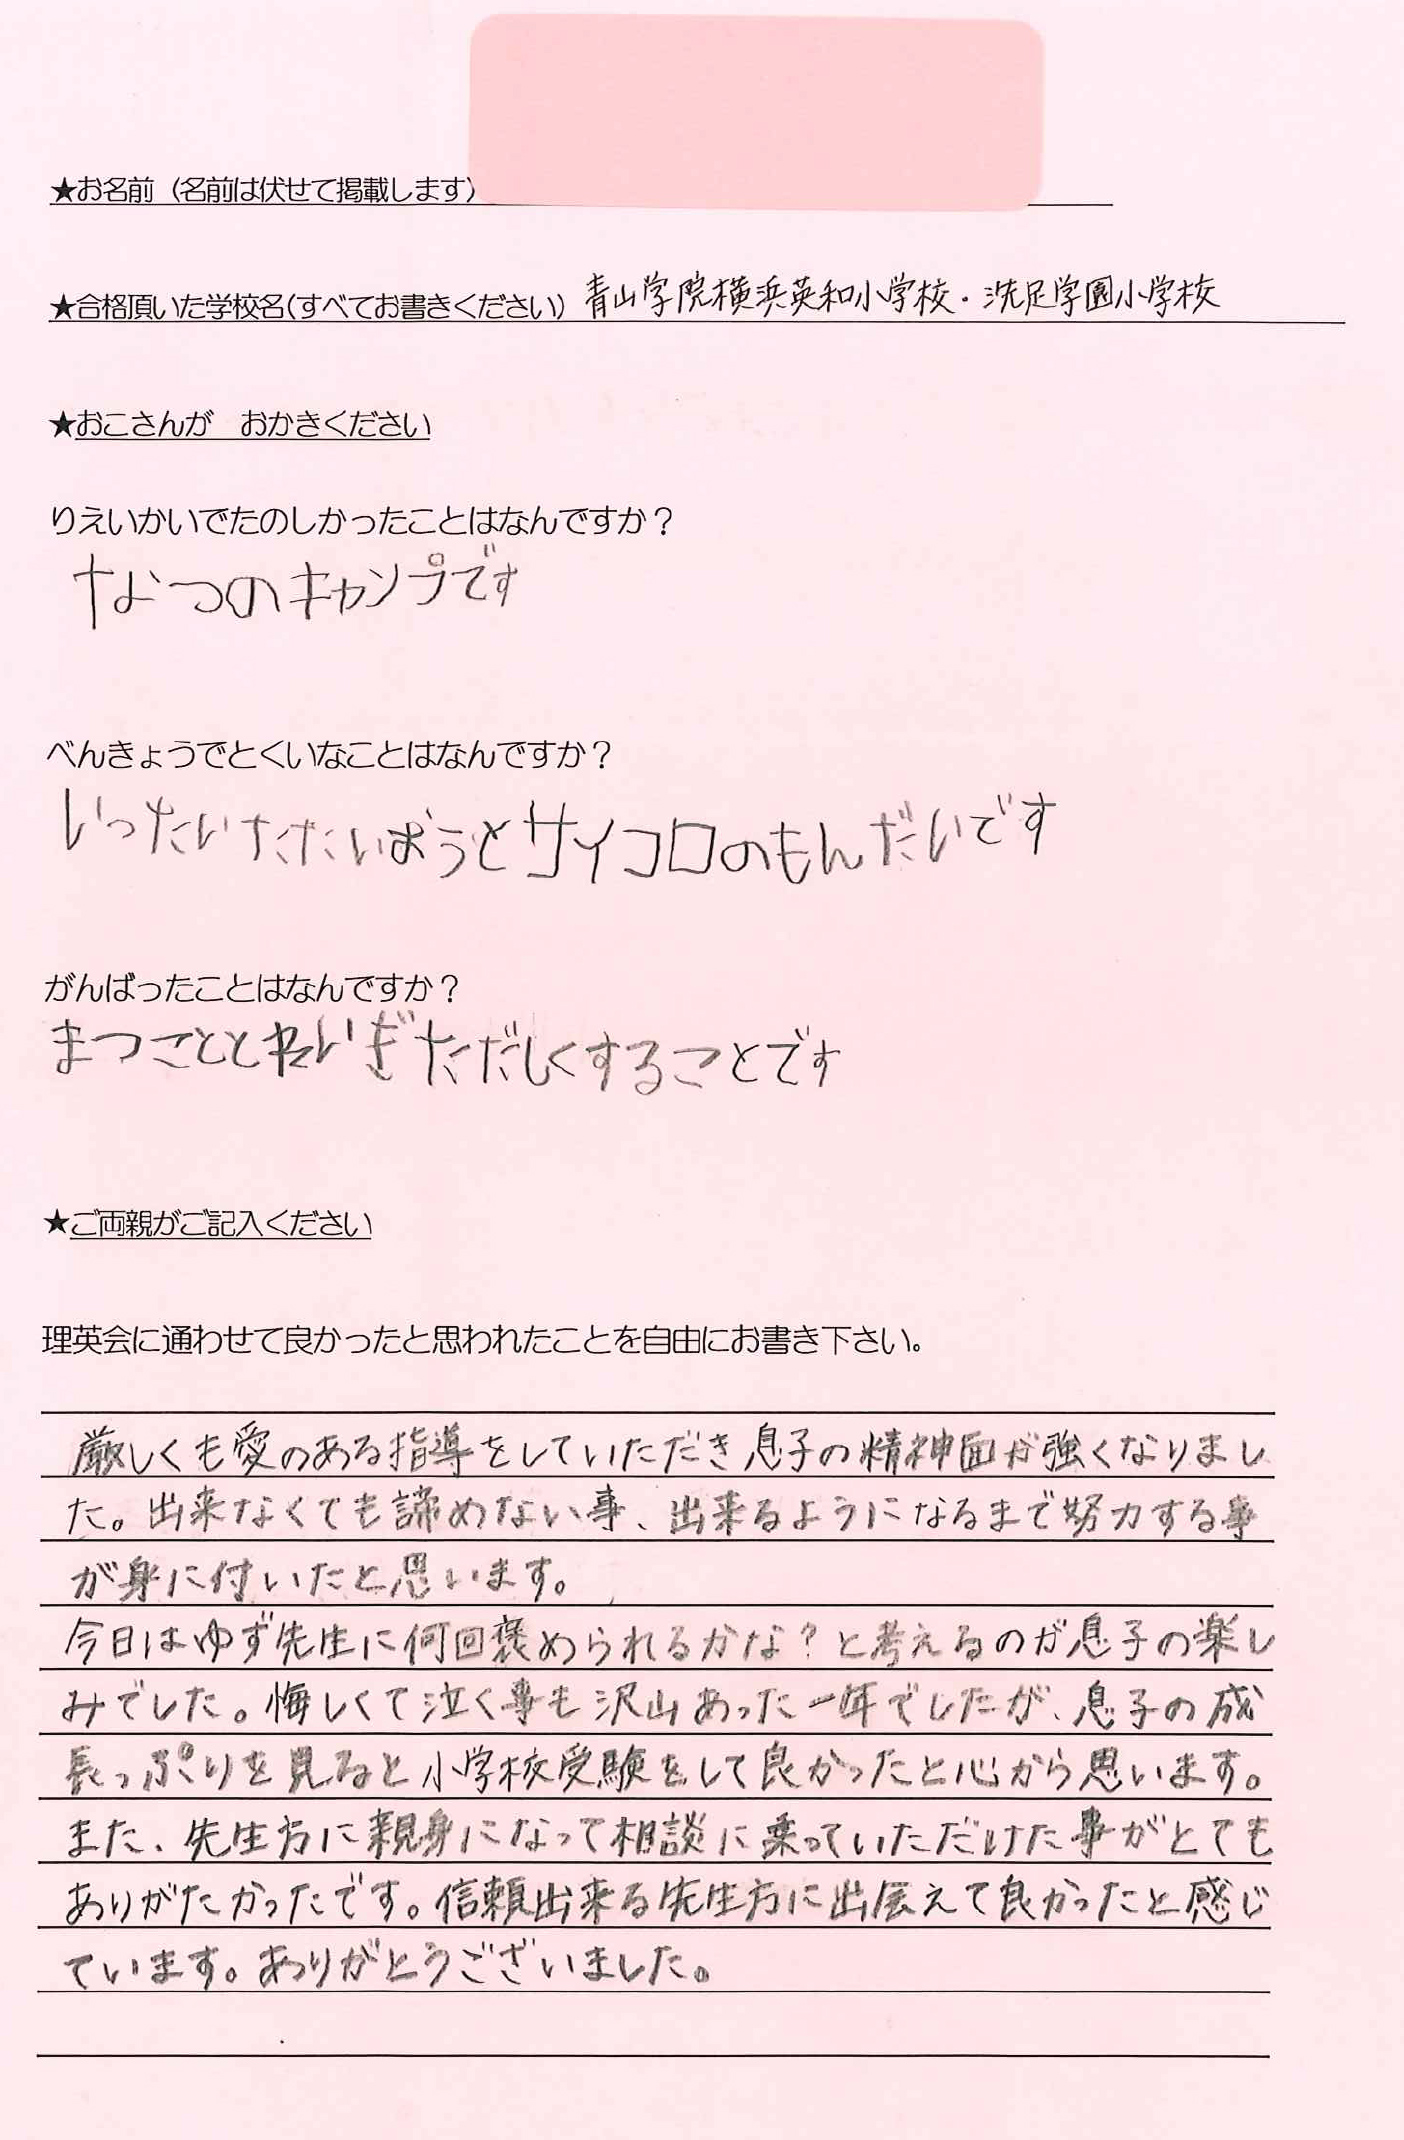 ★お名前（名前は伏せて掲載します）
★合格頂いた学校名（すべてお書きください） 青山学院横浜英和小学校・洗足学園小学校
★おこさんが　おかきください
りえいかいでたのしかったことはなんですか？
なつのキャンプです
べんきょうでとくいなことはなんですか？
いったいたたいおうとサイコロのもんだいです
がんばったことはなんですか？
まつこととれいぎただしくすることです
★ご両親がご記入ください
理英会に通わせて良かったと思われたことを自由にお書き下さい。
厳しくも愛のある指導をしていただき息子の精神面が強くなりまし
た。出来なくても諦めない事、出来るようになるまで努力する事
が身に付いたと思います。
今日はゆず先生に何回褒められるかな？と考えるのが息子の楽し
みでした。悔しくて泣く事も沢山あった一年でしたが、息子の成
長っぷりを見ると小学校受験をして良かったと心から思います。
また、先生方に親身になって相談に乗っていただけた事がとても
ありがたかったです。信頼出来る先生方に出会えて良かったと感じ
ています。ありがとうございました。